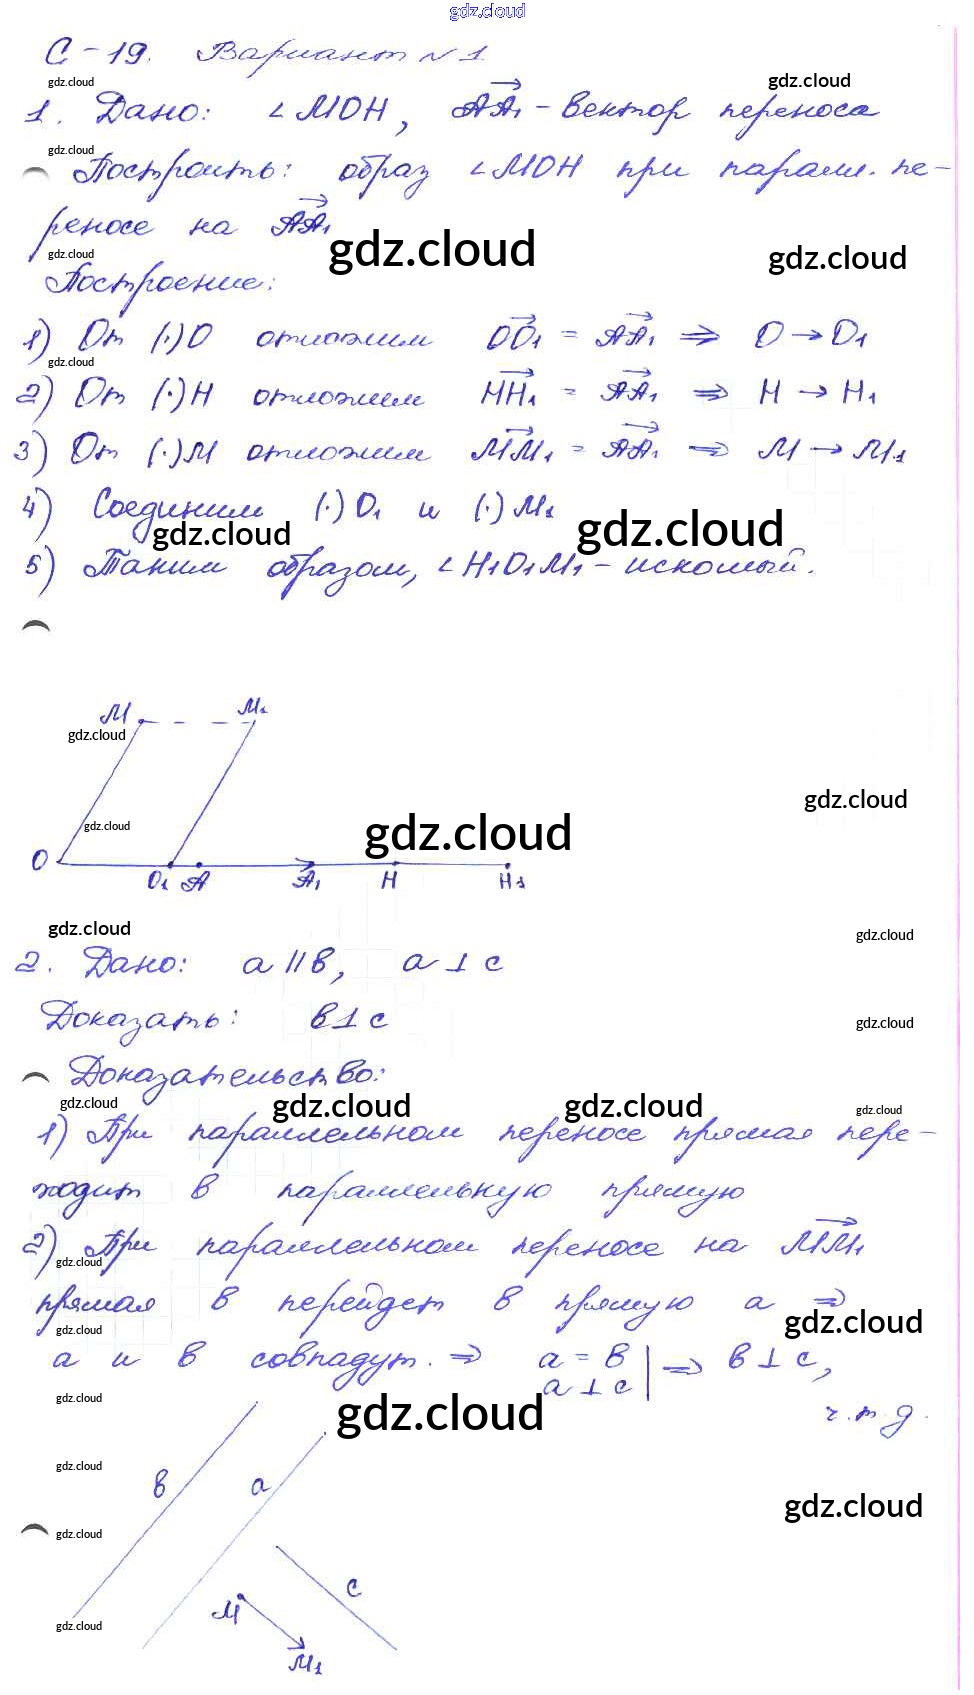 gdz.cloud
С-19. Вариант №1
gdz.cloud gdz.cloud
1. Дано: ∠MOH, AA₁ - вектор переноса
gdz.cloud
Построить: образ ∠MOH при паралл. пе-
реносе на AA₁
gdz.cloud gdz.cloud gdz.cloud
Построение:
1) От (·)O отложим OO₁ = AA₁ ⇒ O → O₁
gdz.cloud
2) От (·)H отложим HH₁ = AA₁ ⇒ H → H₁
3) От (·)M отложим MM₁ = AA₁ ⇒ M → M₁
4) Соединим (·)O₁ и (·)M₁
gdz.cloud gdz.cloud
5) Таким образом, ∠H₁O₁M₁ - искомый.
M M₁
gdz.cloud
gdz.cloud
gdz.cloud gdz.cloud
O O₁ A A₁ H H₁
gdz.cloud gdz.cloud
2. Дано: a || b, a ⊥ c
Доказать: b ⊥ c
gdz.cloud
Доказательство:
gdz.cloud gdz.cloud gdz.cloud gdz.cloud
1) При параллельном переносе прямая пере-
ходит в параллельную прямую
2) При параллельном переносе на MM₁
gdz.cloud
прямая b перейдет в прямую a ⇒
gdz.cloud gdz.cloud
a и b совпадут. ⇒ a = b | ⇒ b ⊥ c,
a ⊥ c
gdz.cloud gdz.cloud
ч.т.д.
gdz.cloud
b a
gdz.cloud
gdz.cloud
c
M
gdz.cloud
M₁